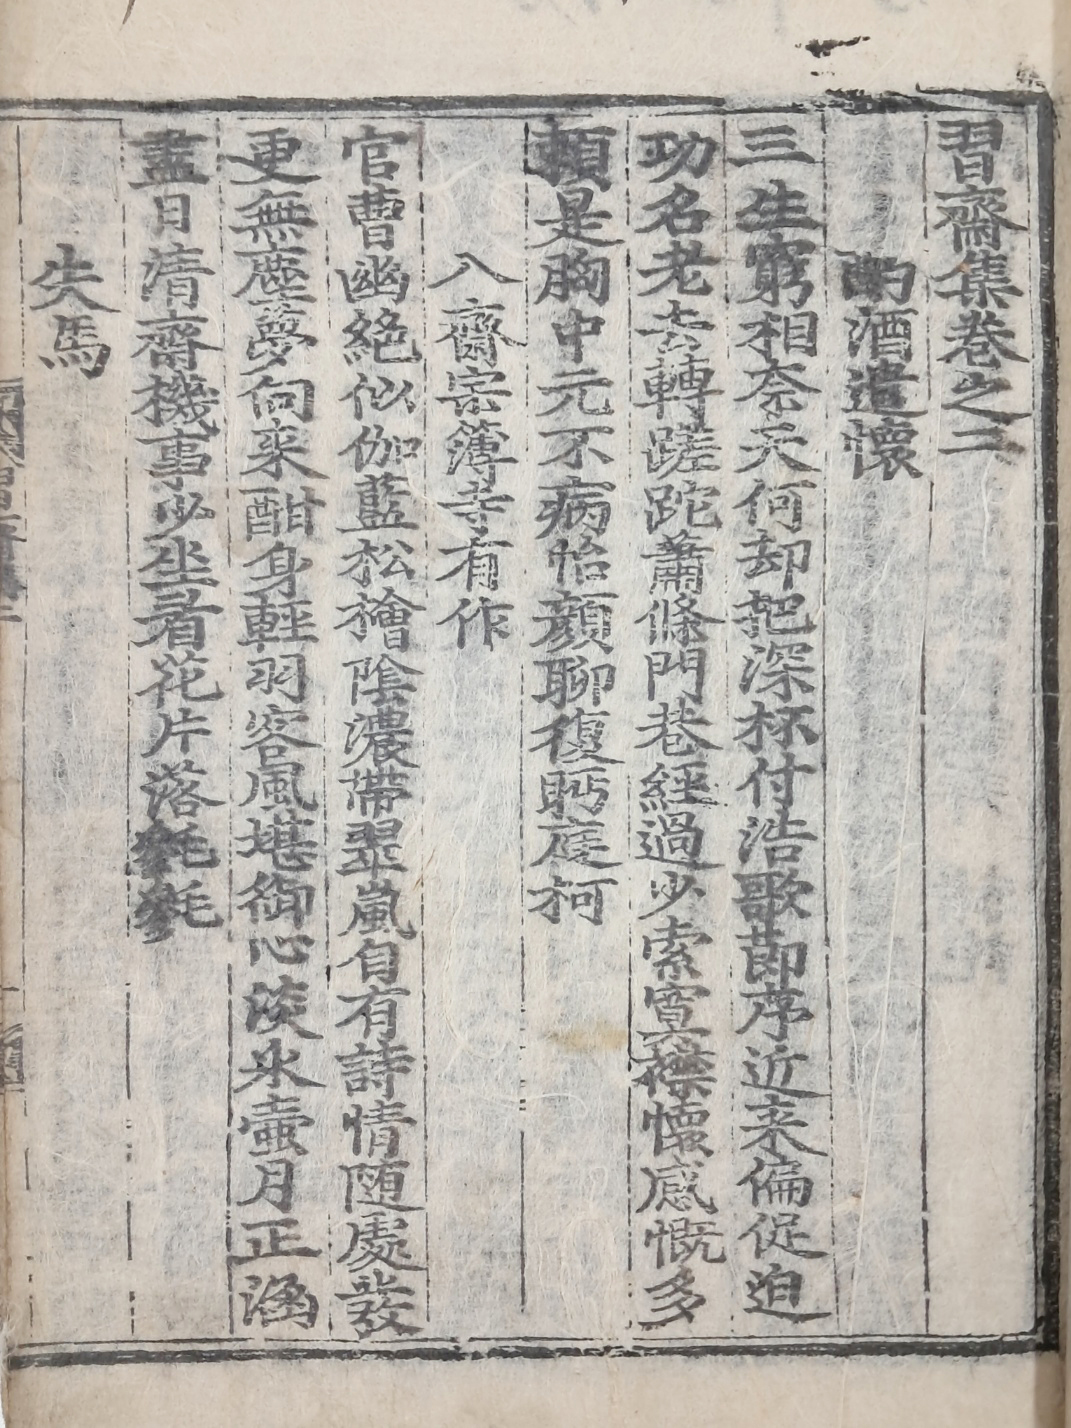 習齋集卷之三
酌酒遣懷
三生窮相奈天何却把深杯付浩歌節序近来偏促迫
功名老去轉蹉跎蕭條門巷經過少索寞襟懷感慨多
頼是胸中元不病怡顔聊復眄庭柯
入齋宗簿寺有作
官曹幽絕似伽藍松檜陰濃帶翠嵐自有詩情随處發
更無塵夢向来酣身輕羽客風堪御心淡氷壺月正涵
盡日清齋機事少坐看花片落毿毿
失馬